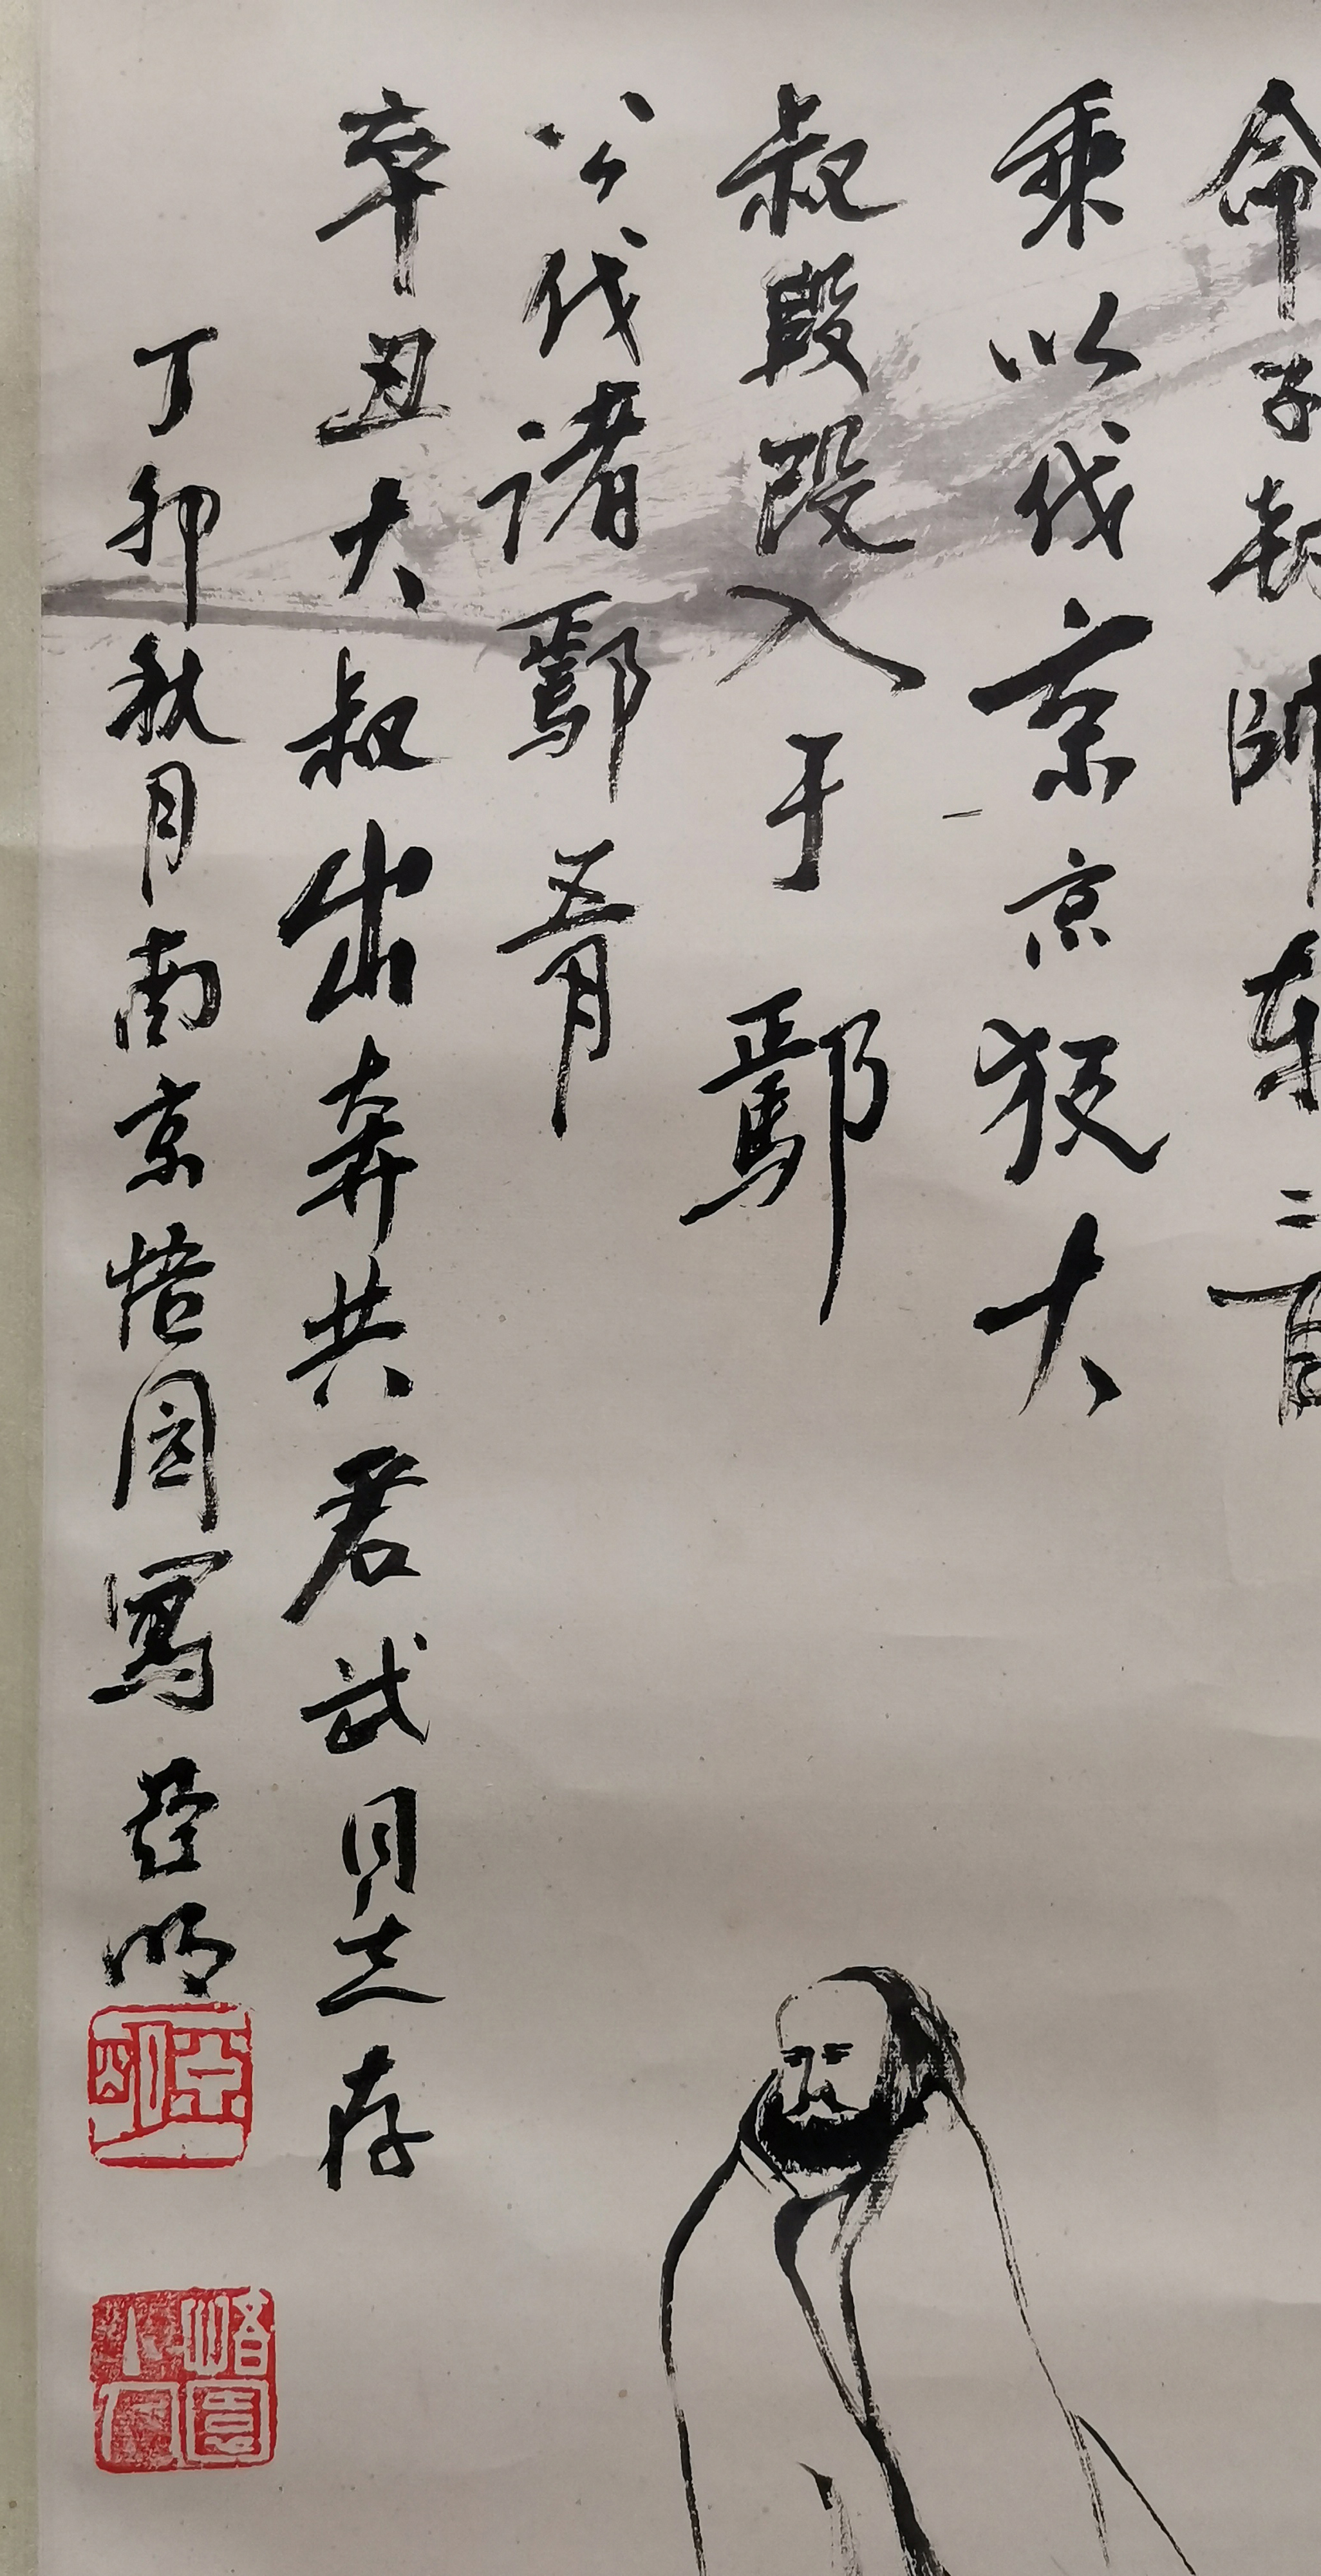 命子封帥车二百
乘以伐京京叛大
叔段段入于鄢
公伐诸鄢五月
辛丑大叔出奔共君武同志存
丁卯秋月南京悟园寫亞明
亞明
悟園